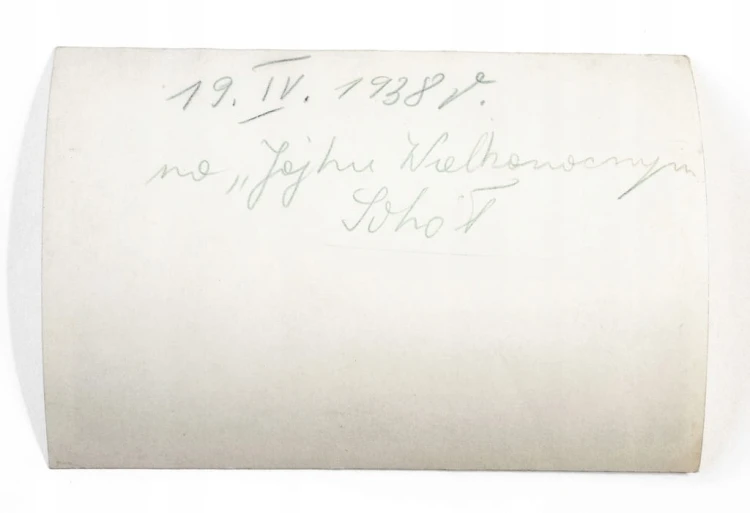 19. IV. 1938 r.
na „Jajku Wielkanocnym
Sokół